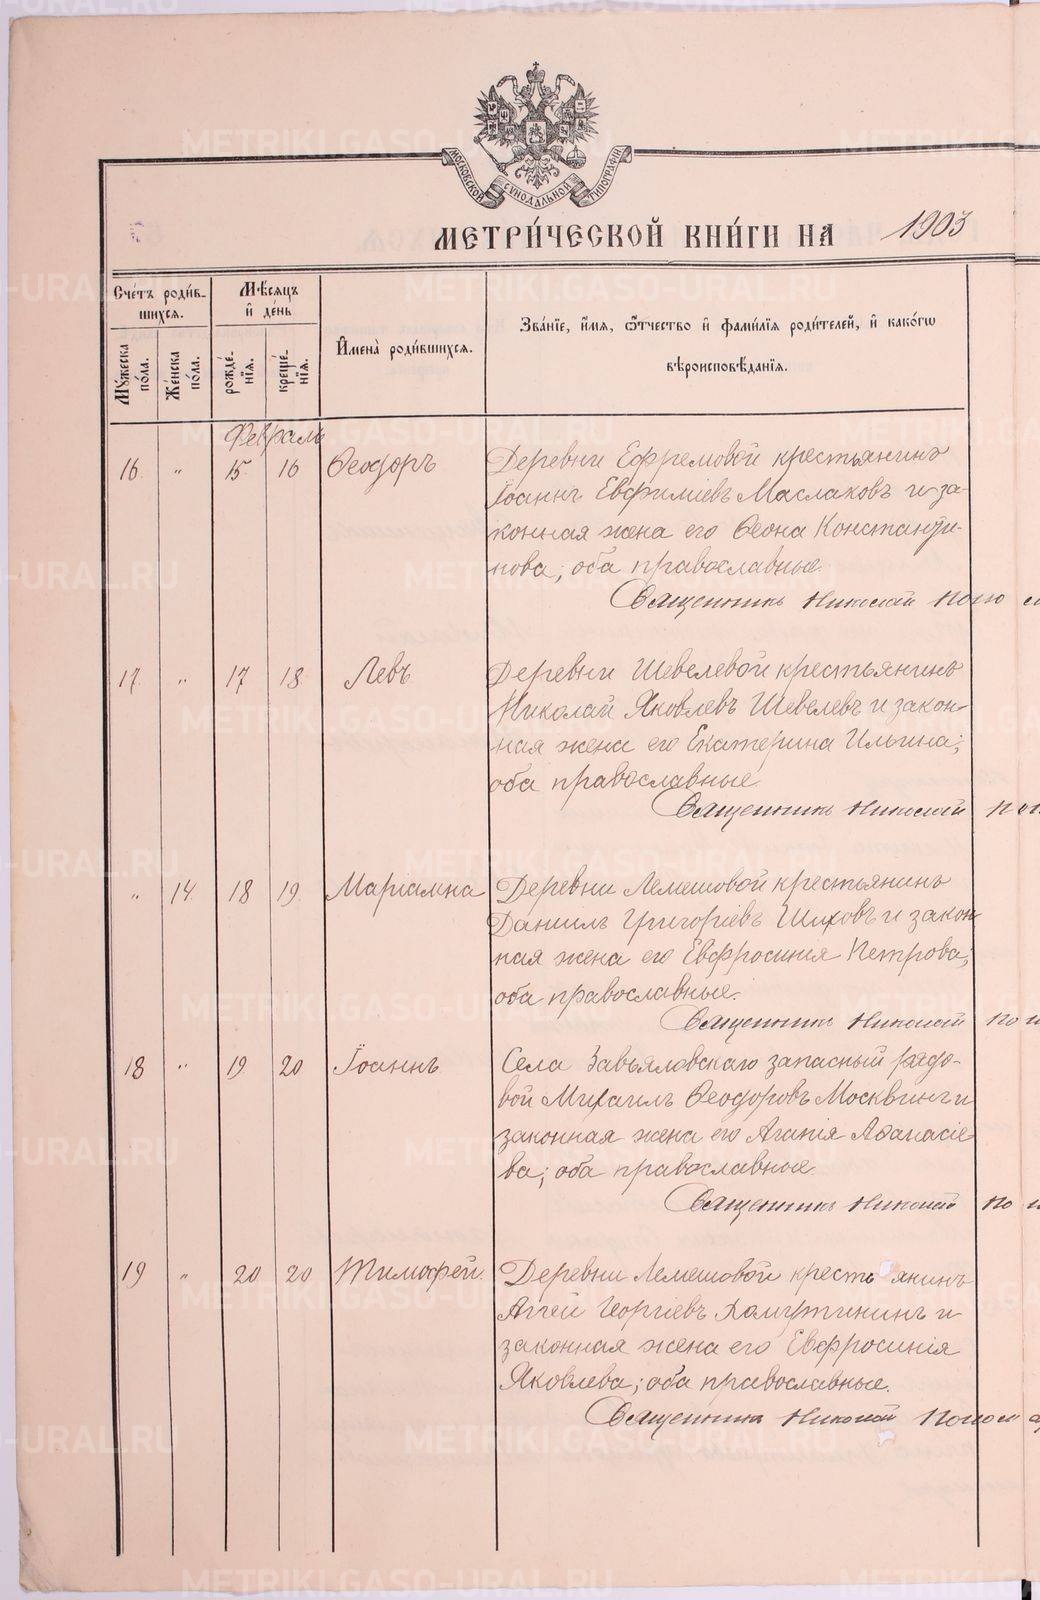 МОСКОВСКОЙ СУНОДАЛЬНОЙ ТИПОГРАФІИ
МЕТРИ́ЧЕСКОЙ КНИ́ГИ НА 1903
Сче́тъ роди́в-
шихся.
Мѣ́сяцъ
и҆ де́нь
И҆мена̀ роди́вшихся.
Зва́нїе, и҆́мя, ѻ҆́тчество и҆ фами́лїя роди́телей, и҆ како́гѡ
вѣроисповѣ́данїя.
Мꙋ́жеска по́ла.
Же́нска по́ла.
рожде́-нїя.
креще́-нїя.
Февраль
16. " 15 16 Ѳеодоръ Деревни Ефремовой крестьянинъ
Іоаннъ Евфиміевъ Маслаковъ и за-
конная жена его Ѳеона Константи-
нова; оба православные.
Священникъ Николай
17. " 17 18 Левъ Деревни Шевелевой крестьянинъ
Николай Яковлевъ Шевелевъ и закон-
ная жена его Екатерина Ильина;
оба православные
Священникъ Николай
" 14. 18 19. Маріамна Деревни Лемешовой крестьянинъ
Даниилъ Григоріевъ Шиховъ и закон-
ная жена его Евфросинія Петрова;
оба православные.
Священникъ Николай
18 " 19 20 Іоаннъ Села Завьяловскаго запасный рядо-
вой Михаилъ Ѳеодоровъ Москвинъ и
законная жена его Агапія Аѳанасіе-
ва; оба православные.
Священникъ Николай
19 " 20 20 Тимофей. Деревни Лемешовой крестьянинъ
Аггей Георгіевъ и
законная жена его Евфросинія
Яковлева; оба православные.
Священникъ Николай
METRIKI.GASO-URAL.RU